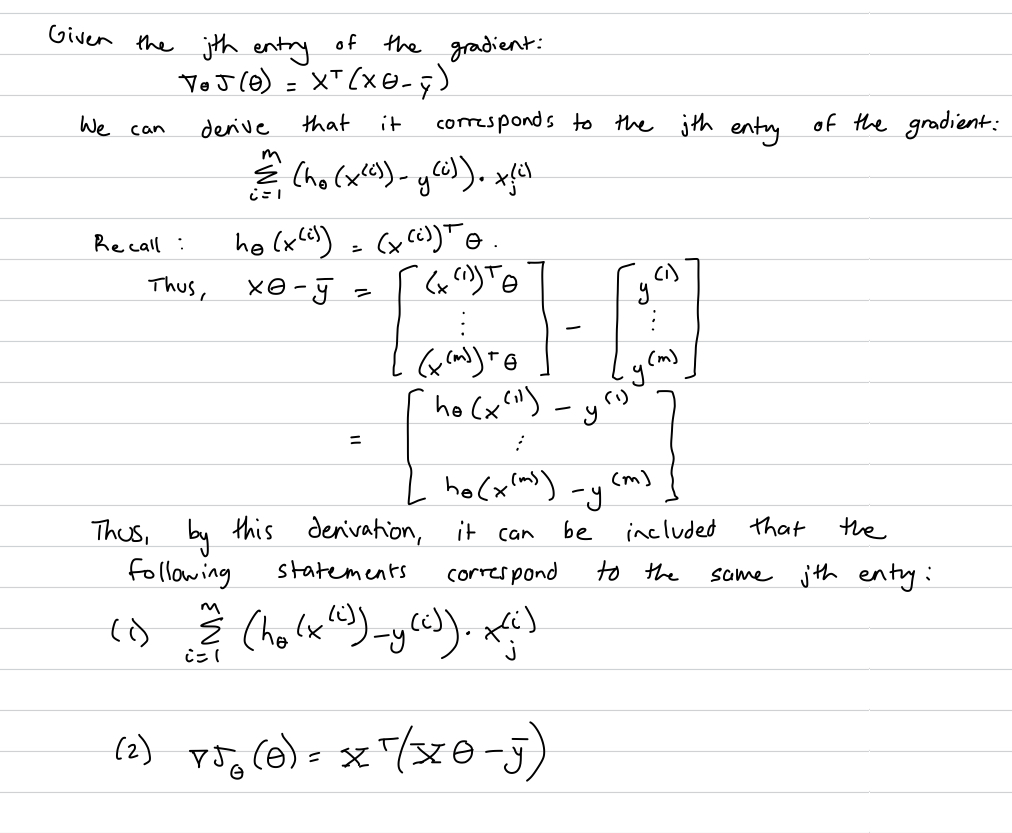 Given the jth entry of the gradient:
∇θ J(θ) = Xᵀ(Xθ - ȳ)
We can derive that it corresponds to the jth entry of the gradient:
∑_{i=1}^{m} (hθ(x⁽ⁱ⁾) - y⁽ⁱ⁾) · xⱼ⁽ⁱ⁾
Recall : hθ(x⁽ⁱ⁾) = (x⁽ⁱ⁾)ᵀθ .
Thus, Xθ - ȳ = [ (x⁽¹⁾)ᵀθ ⋮ (x⁽ᵐ⁾)ᵀθ ] - [ y⁽¹⁾ ⋮ y⁽ᵐ⁾ ]
= [ hθ(x⁽¹⁾) - y⁽¹⁾ ⋮ hθ(x⁽ᵐ⁾) - y⁽ᵐ⁾ ]
Thus, by this derivation, it can be included that the
following statements correspond to the same jth entry :
(1) ∑_{i=1}^{m} (hθ(x⁽ⁱ⁾) - y⁽ⁱ⁾) · xⱼ⁽ⁱ⁾
(2) ∇Jθ(θ) = Xᵀ(Xθ - ȳ)